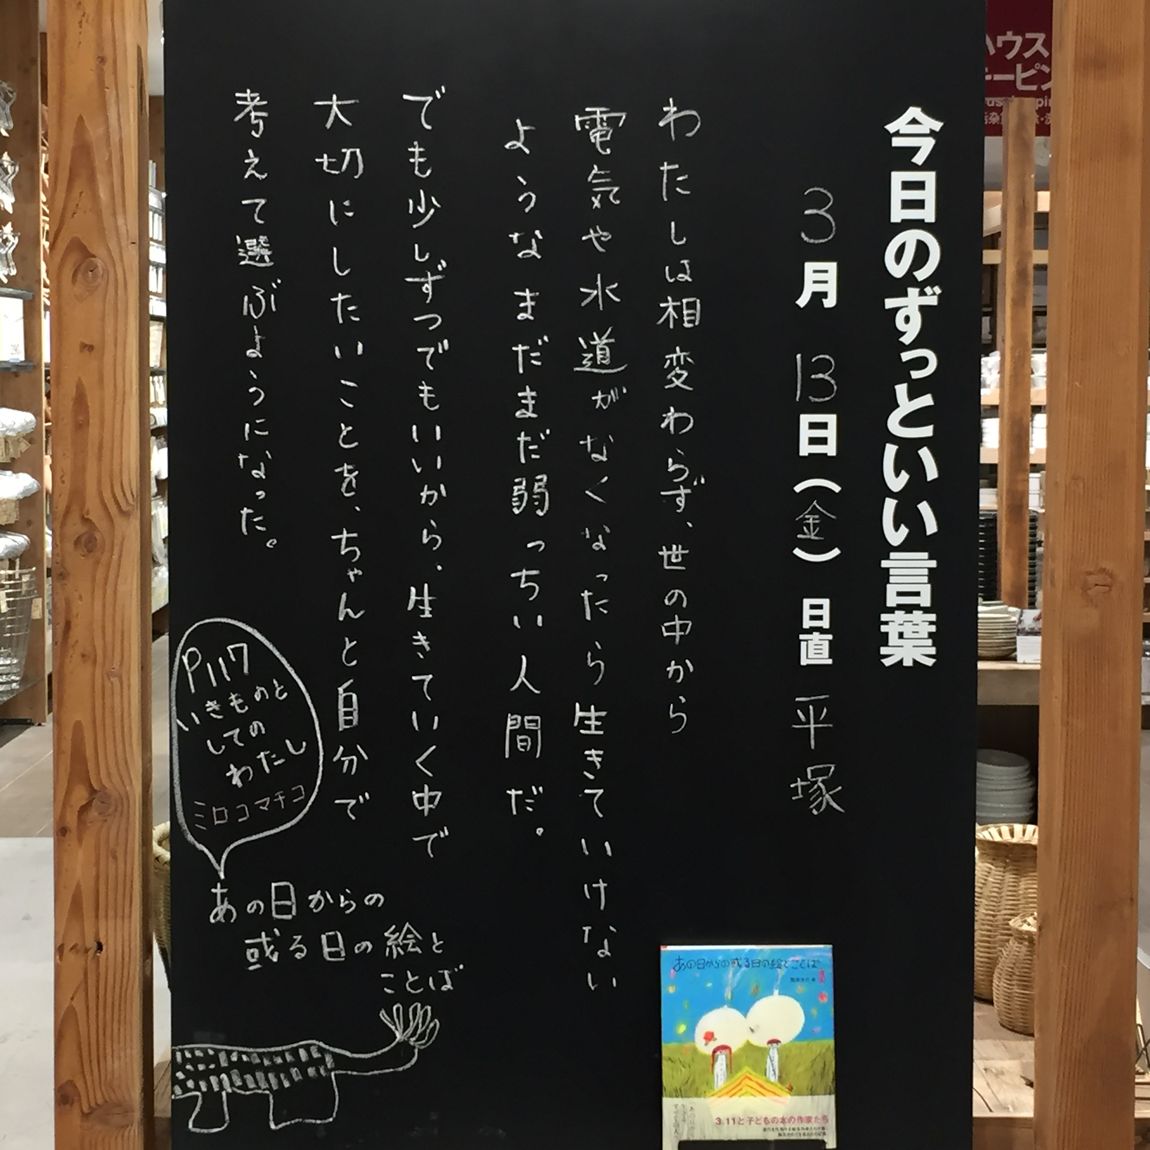 今日のずっといい言葉
3月13日(金)日直 平塚
わたしは相変わらず、世の中から
電気や水道がなくなったら生きていけない
ようなまだまだ弱っちい人間だ。
でも少しずつでもいいから、生きていく中で
大切にしたいことを、ちゃんと自分で
考えて選ぶようになった。
P117
いきものと
しての
わたし
ミロコマチコ
あの日からの
或る日の絵と
ことば
あの日からの或る日の絵とことば
3.11と子どもの本の作家たち
ハウス
キーピン